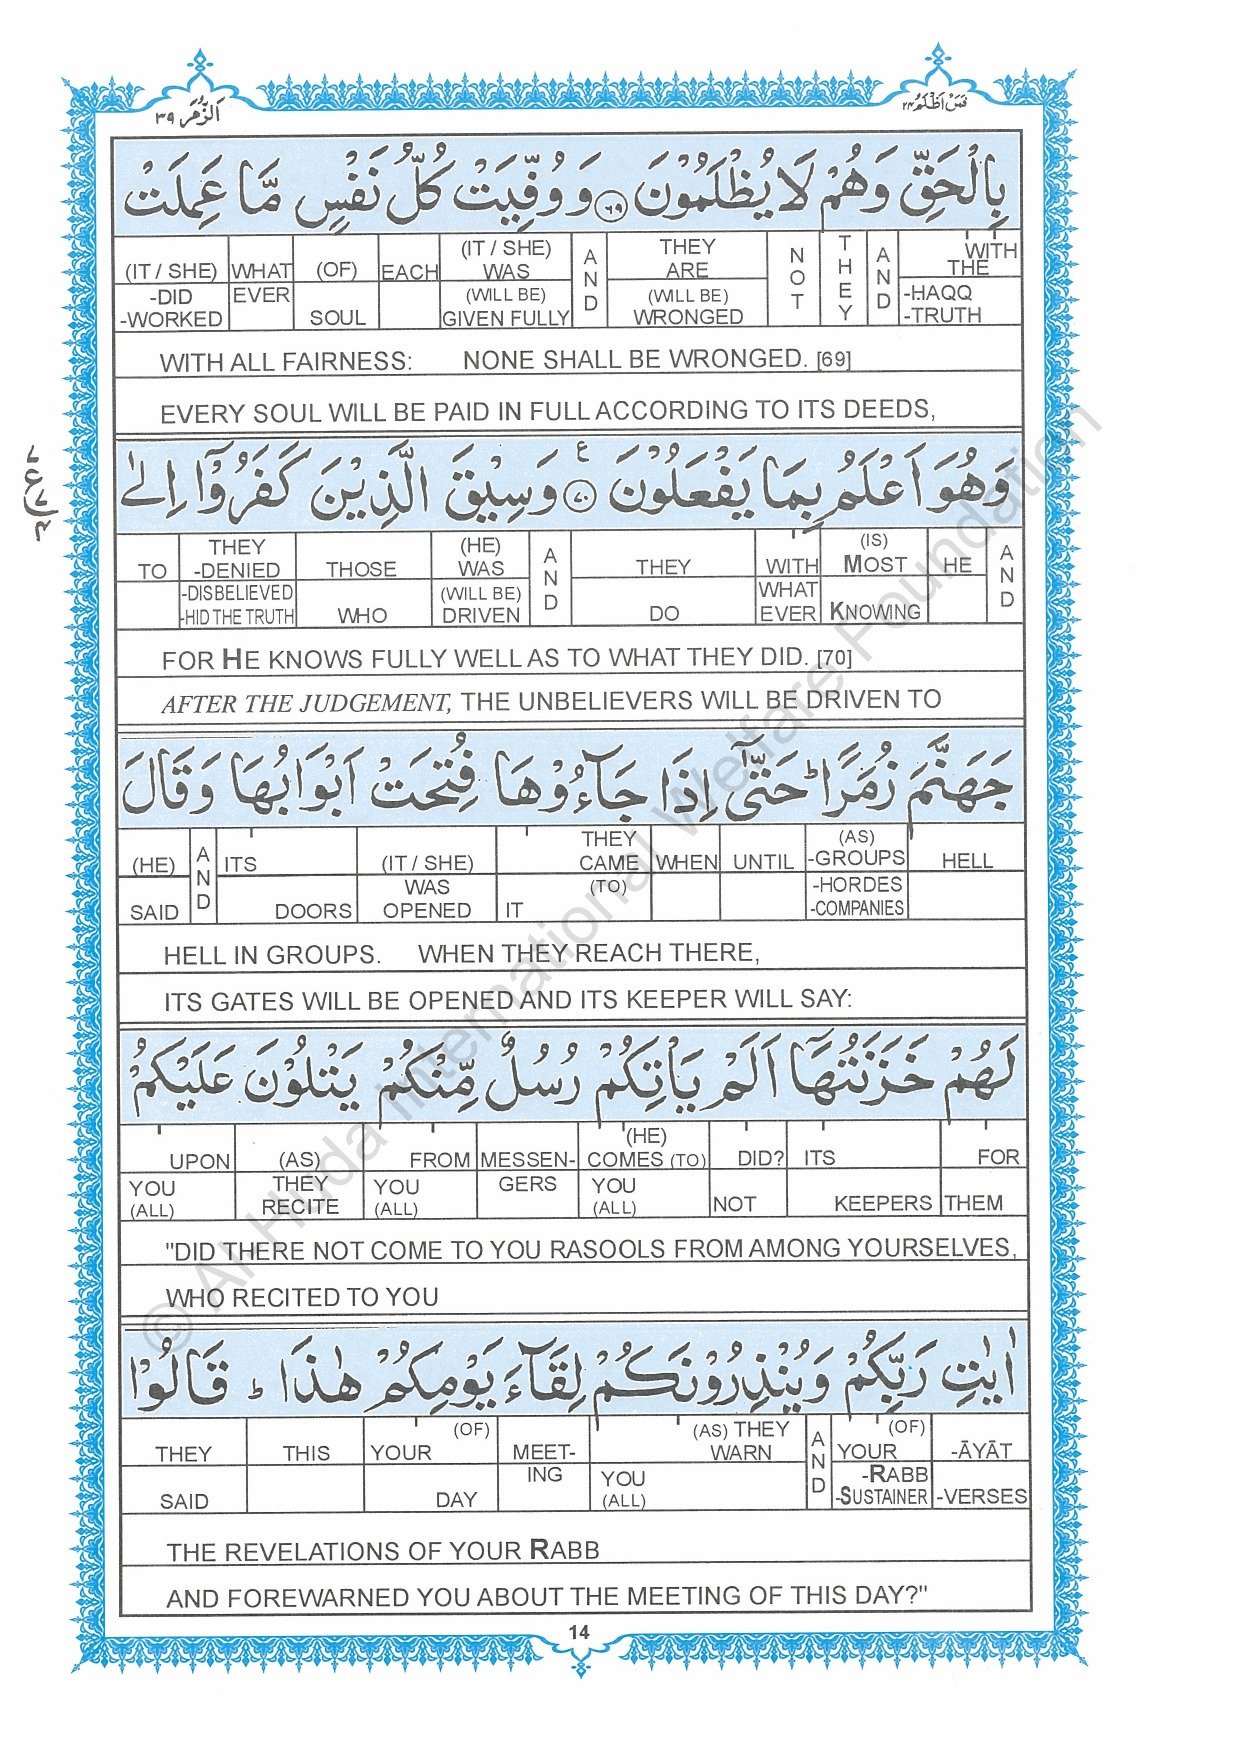 اَلزُّمَر ۳۹
فَمَنْ اَظْلَمُ ۲۴
بِالْحَقِّ وَهُمْ لَا يُظْلَمُوْنَ ﴿۶۹﴾ وَوُفِّيَتْ كُلُّ نَفْسٍ مَّا عَمِلَتْ
(IT / SHE) -DID -WORKED | WHAT EVER | (OF) SOUL | EACH | (IT / SHE) WAS (WILL BE) GIVEN FULLY | AND | THEY ARE (WILL BE) WRONGED | NOT | THEY | AND | WITH THE -HAQQ -TRUTH
WITH ALL FAIRNESS: NONE SHALL BE WRONGED. [69]
EVERY SOUL WILL BE PAID IN FULL ACCORDING TO ITS DEEDS,
وَهُوَ اَعْلَمُ بِمَا يَفْعَلُوْنَ ﴿۷۰﴾ ع وَسِيْقَ الَّذِيْنَ كَفَرُوْٓا اِلٰى
TO | THEY -DENIED -DISBELIEVED -HID THE TRUTH | THOSE WHO | (HE) WAS (WILL BE) DRIVEN | AND | THEY DO | WITH WHAT EVER | (IS) MOST KNOWING | HE | AND
FOR HE KNOWS FULLY WELL AS TO WHAT THEY DID. [70]
AFTER THE JUDGEMENT, THE UNBELIEVERS WILL BE DRIVEN TO
جَهَنَّمَ زُمَرًا ط حَتّٰٓى اِذَا جَآءُوْهَا فُتِحَتْ اَبْوَابُهَا وَقَالَ
(HE) SAID | AND | ITS DOORS | (IT / SHE) WAS OPENED | THEY CAME (TO) IT | WHEN | UNTIL | (AS) -GROUPS -HORDES -COMPANIES | HELL
HELL IN GROUPS. WHEN THEY REACH THERE,
ITS GATES WILL BE OPENED AND ITS KEEPER WILL SAY:
لَهُمْ خَزَنَتُهَآ اَلَمْ يَأْتِكُمْ رُسُلٌ مِّنْكُمْ يَتْلُوْنَ عَلَيْكُمْ
UPON YOU (ALL) | (AS) THEY RECITE | FROM YOU (ALL) | MESSEN-GERS | (HE) COMES (TO) YOU (ALL) | DID? NOT | ITS KEEPERS | FOR THEM
"DID THERE NOT COME TO YOU RASOOLS FROM AMONG YOURSELVES,
WHO RECITED TO YOU
اٰيٰتِ رَبِّكُمْ وَيُنْذِرُوْنَكُمْ لِقَآءَ يَوْمِكُمْ هٰذَا ط قَالُوْا
THEY SAID | THIS | (OF) YOUR DAY | MEET-ING | (AS) THEY WARN YOU (ALL) | AND | (OF) YOUR -RABB -SUSTAINER | -ĀYĀT -VERSES
THE REVELATIONS OF YOUR RABB
AND FOREWARNED YOU ABOUT THE MEETING OF THIS DAY?"
14
© Al Huda International Welfare Foundation